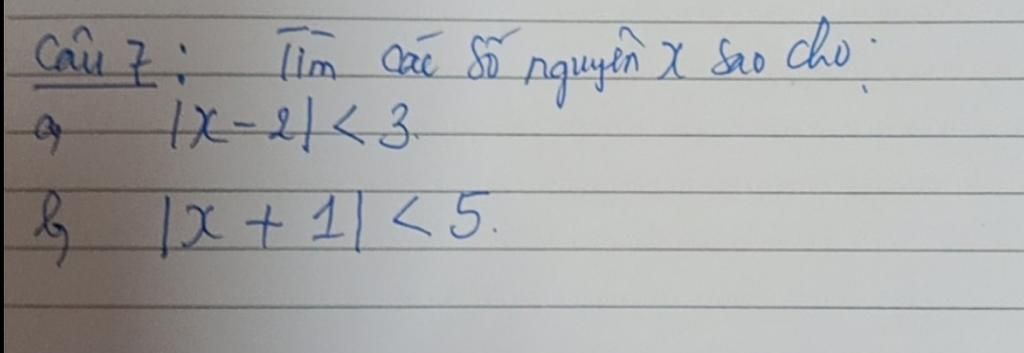 Câu 7: Tìm các số nguyên x sao cho:
a, |x - 2| < 3.
b, |x + 1| < 5.